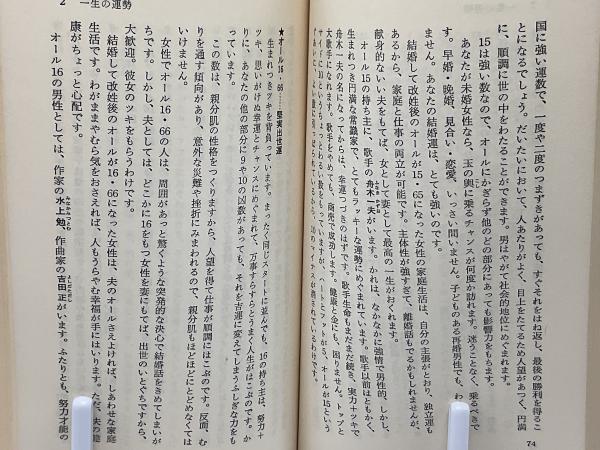 国に強い運数で、一度や二度のつまずきがあっても、すぐそれをはね返し、最後の勝利を得るこ
とになるでしょう。だいたいにおいて、人あたりがよく、目上をたてるため人望があつく、円満
に、順調に世の中をわたることができます。男はやがて社会的地位にめぐまれます。
15は強い数なので、オールにかぎらず他のどの部分にあっても影響力をもちます。
あなたが未婚女性なら、玉の輿に乗るチャンスが何度か訪れます。迷うことなく、乗るべきで
す。早婚・晩婚、見合い・恋愛、いっさい問いません。子どものある再婚男性でも、
ません。あなたの結婚運は、とても強いのです。
結婚して改姓後のオールが15・65になった女性の家庭生活は、自分の主張がとおり、独立運も
あるから、家庭と仕事の両立が可能です。主体性が強すぎて、離婚話もでるかもしれませんが、
献身的ない夫をもてば、女として妻として最高の一生がおくれます。
オール15の持ち主に、歌手の舟木一夫がいます。かれは、なかなかに強情で男性的、しかし、
生まれつき円満な常識家で、とてもラッキーな運勢にめぐまれています。歌手以前はともかく、
舟木一夫の名になってからは、幸運つづきのはずです。歌手生命もまだまだ続き、実力＋ツキで
大歌手になれます。歌手をやめても、商売で成功します。健康と金にも、困りません。トップと
サイドに10という
が、ハートとフットが5、オールが15という
10のマイナスが消されているわけです。
74
2 一生の運勢
★オール16・66……堅実出世運
生まれつきツキを背負っています。まったく同じスタートに並んでも、16の持ち主は、努力＋
ツキ、思いがけぬ幸運とチャンスにめぐまれて、万事すらすらとうまく人生がはこぶのです。か
りに、あなたの他の部分に9や10の凶数があっても、それを吉運に変えてしまうふしぎな力をも
っています。
この数は、親分肌の性格をつくりますから、人望を得て仕事が順調にはこぶのです。反面、む
りを通す傾向があり、意外な災難や挫折にみまわれるので、親分肌もほどほどにとどめなくては
いけません。
女性でオール16・66の人は、周囲があっと驚くような突発的な決心で結婚話をきめてしまいが
ちです。しかし、夫としては、どこかに16をもつ女性を妻にもてば、出世のいとぐちですから、
大歓迎。彼女のツキをもらうわけです。
結婚して改姓後のオールが16・66になった女性は、夫のオールさえ上ければ、しあわせな家庭
生活です。わがままやむら気をおさえれば、人もうらやむ幸福が手にはいります。ただ、夫の健
康がちょっと心配です。
オール16の男性としては、作家の水上勉、作曲家の吉田正がいます。ふたりとも、努力才能の